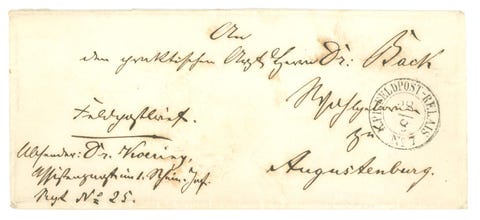 An
den praktischen Arzt Herrn Dr: Back
Wohlgeboren
zu
Augustenburg.
Feldpostbrief.
Absender: Dr.
Assistenzarzt im 1. Rhein. Inf.
Regt No 25.
K.PR.FELDPOST-RELAIS
No 7